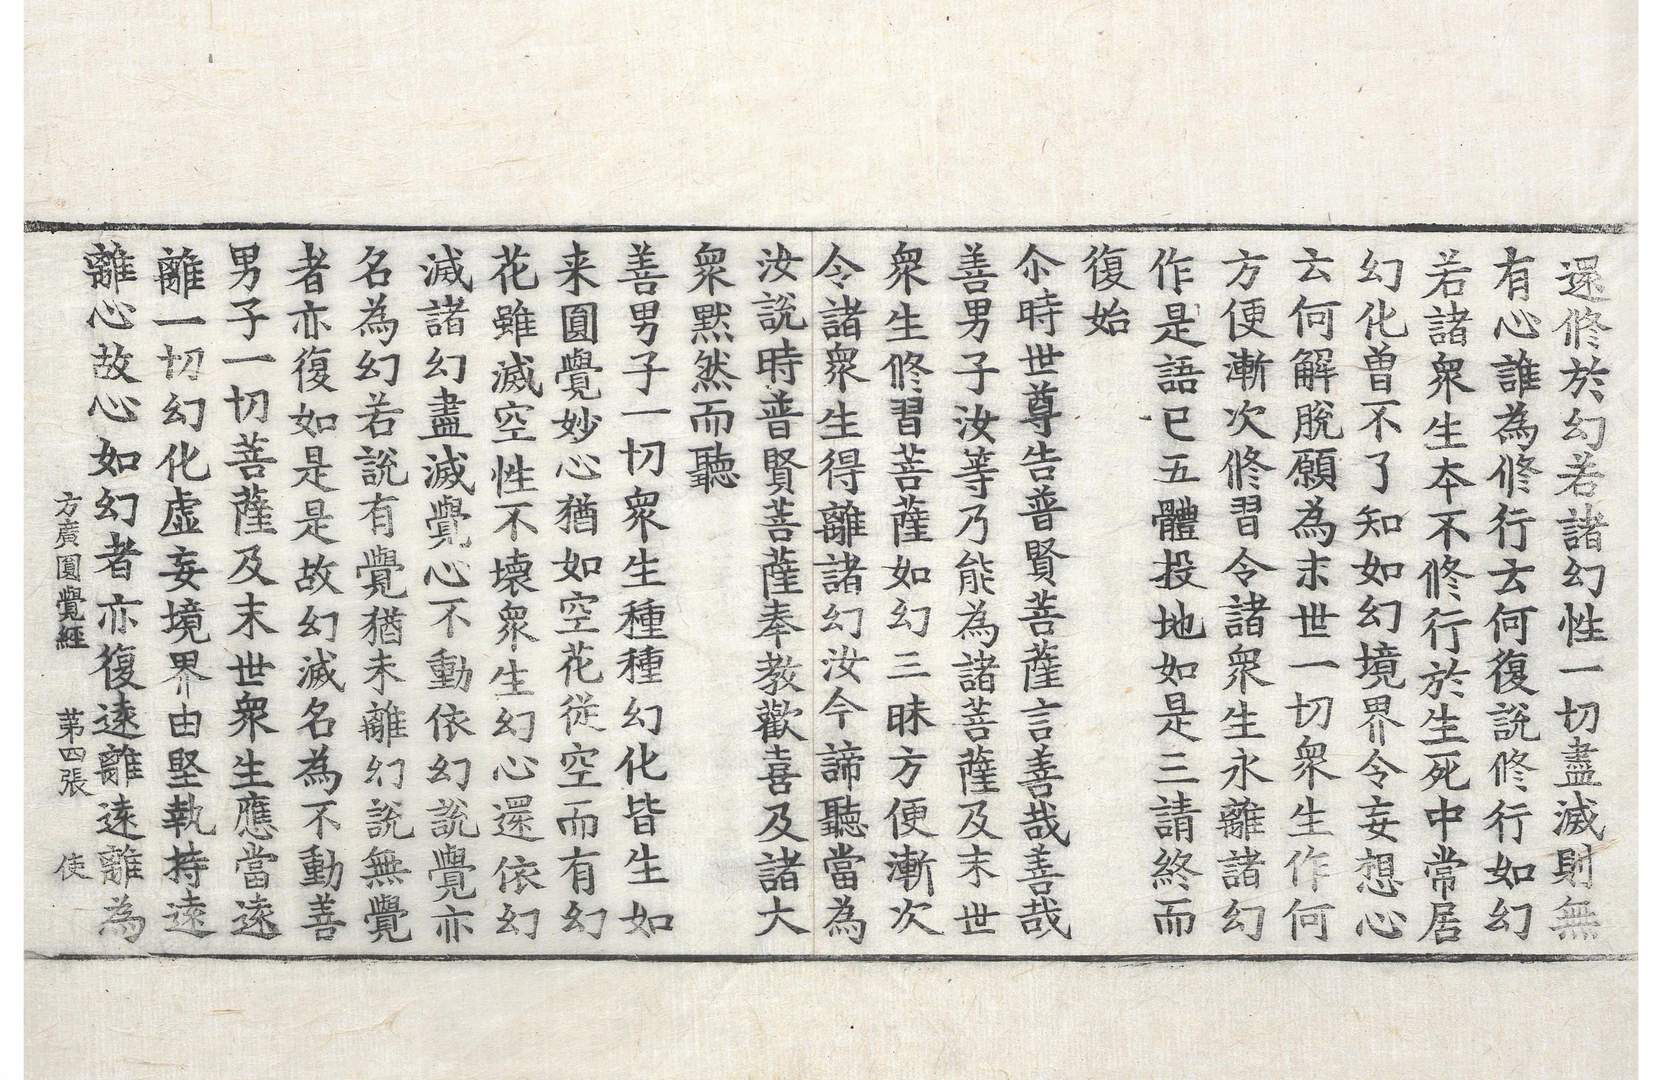 還修於幻若諸幻性一切盡滅則無
有心誰為修行云何復說修行如幻
若諸衆生本不修行於生死中常居
幻化曾不了知如幻境界令妄想心
云何解脫願為末世一切衆生作何
方便漸次修習令諸衆生永離諸幻
作是語已五體投地如是三請終而
復始
尒時世尊告普賢菩薩言善哉善哉
善男子汝等乃能為諸菩薩及末世
衆生修習菩薩如幻三昧方便漸次
令諸衆生得離諸幻汝今諦聽當為
汝說時普賢菩薩奉教歡喜及諸大
衆默然而聽
善男子一切衆生種種幻化皆生如
来圓覺妙心猶如空花從空而有幻
花雖滅空性不壞衆生幻心還依幻
滅諸幻盡滅覺心不動依幻說覺亦
名為幻若說有覺猶未離幻說無覺
者亦復如是是故幻滅名為不動善
男子一切菩薩及末世衆生應當遠
離一切幻化虛妄境界由堅執持遠
離心故心如幻者亦復遠離遠離為
方廣圓覺經 第四張 使